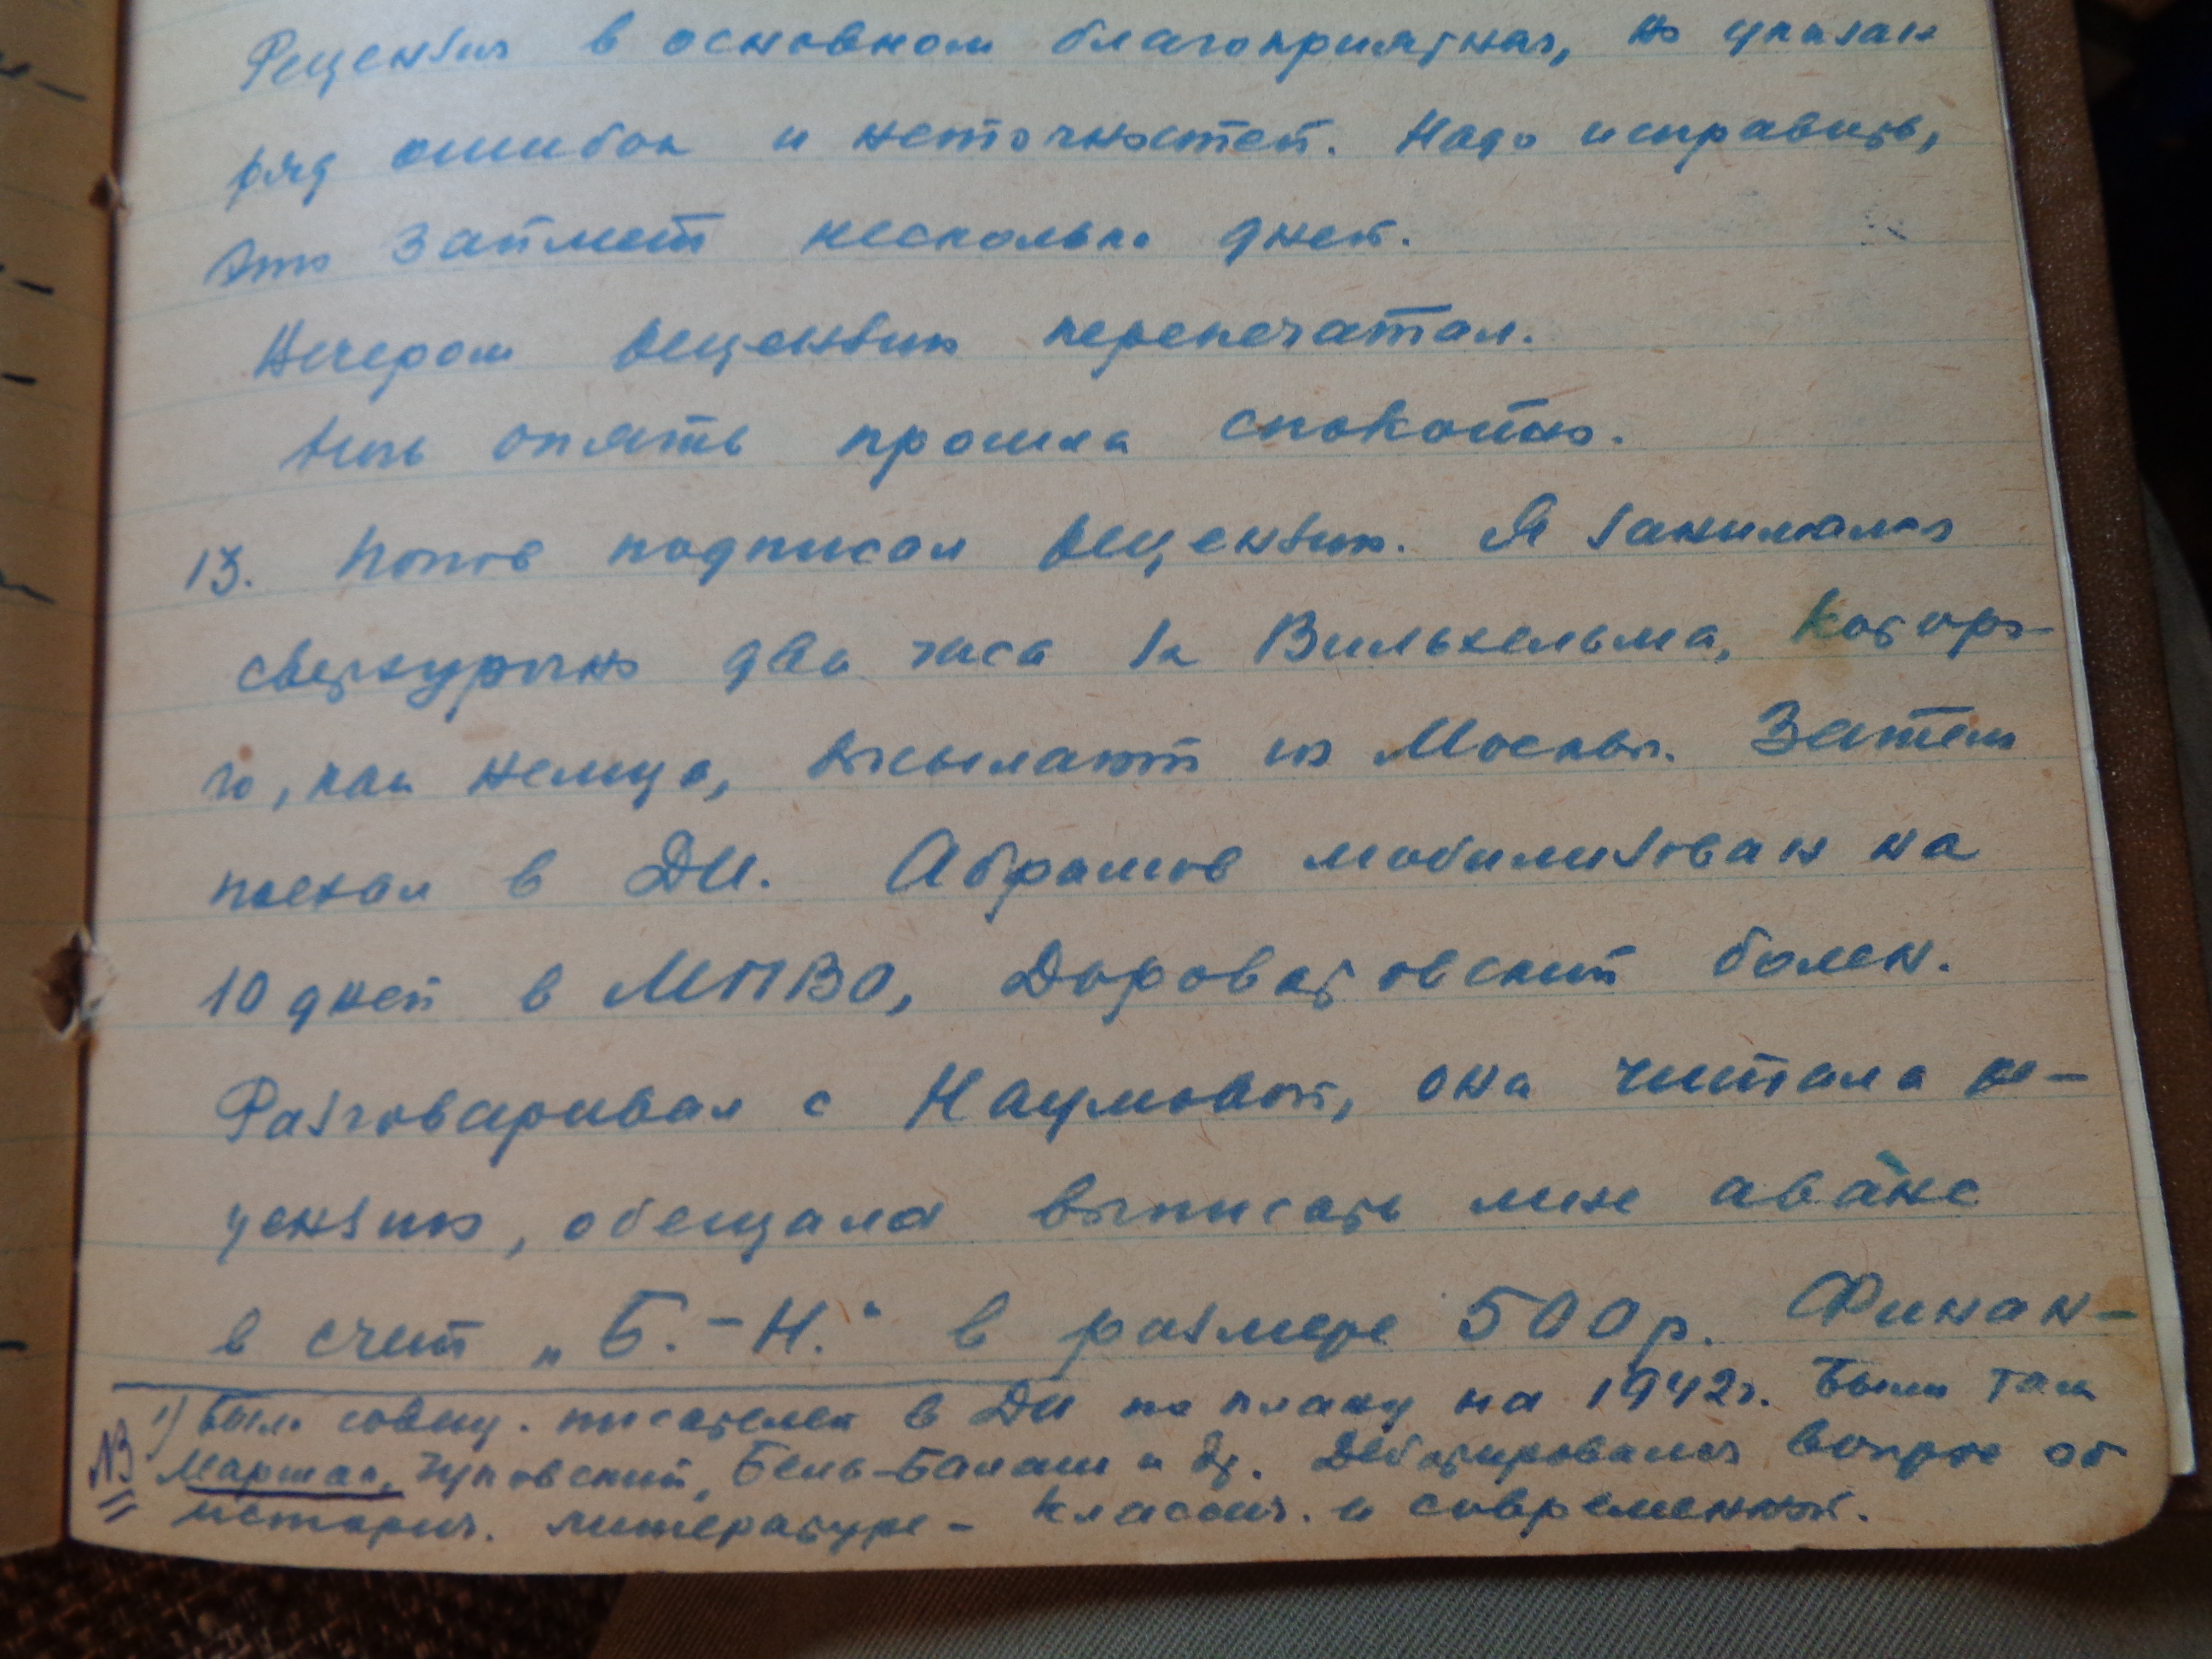 Рецензия в основном благоприятная, но указан
ряд ошибок и неточностей. Надо исправить,
это займет несколько дней.
Вечером рецензию перепечатал.
Ночь опять прошла спокойно.
13. Попов подписал рецензию. Я занимался
сверхурочно два часа за Вильхельма, которо-
го, как немца, высылают из Москвы. Затем
поехал в ДИ. Абрамов мобилизован на
10 дней в МПВО, Дороватовский болен.
Разговаривал с Наумовой, она читала ре-
цензию, обещала выписать мне аванс
в счет „Б.-Н.“ в размере 500 р. Финан-
1) Было совещ. писателей в ДИ по плану на 1942 г. Были там
NB Маршак, Чуковский, Бель-Балаш и др. Дебатировался вопрос об
историч. литературе - классич. и современной.